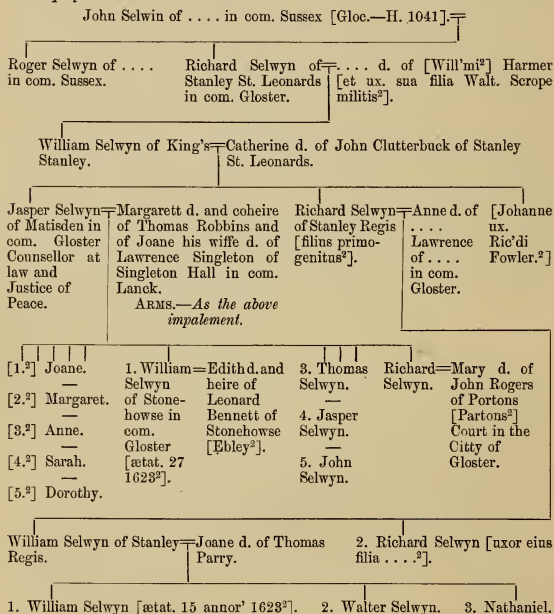 John Selwin of . . . . in com. Sussex [Gloc.—H. 1041].
Roger Selwyn of . . . .
in com. Sussex.
Richard Selwyn of
Stanley St. Leonards
in com. Gloster.
. . . . d. of [Will'mi²] Harmer
[et ux. sua filia Walt. Scrope
militis²].
William Selwyn of King's
Stanley.
Catherine d. of John Clutterbuck of Stanley
St. Leonards.
Jasper Selwyn
of Matisden in
com. Gloster
Counsellor at
law and
Justice of
Peace.
Margarett d. and coheire
of Thomas Robbins and
of Joane his wiffe d. of
Lawrence Singleton of
Singleton Hall in com.
Lanck.
ARMS.—As the above
impalement.
Richard Selwyn
of Stanley Regis
[filius primo-
genitus²].
Anne d. of
. . . .
Lawrence
of . . . .
in com.
Gloster.
[Johanne
ux.
Ric'di
Fowler.²]
[1.²] Joane.
—
[2.²] Margaret.
—
[3.²] Anne.
—
[4.²] Sarah.
—
[5.²] Dorothy.
1. William
Selwyn
of Stone-
howse in
com.
Gloster
[ætat. 27
1623²].
Edith d. and
heire of
Leonard
Bennett of
Stonehowse
[Ebley²].
3. Thomas
Selwyn.
—
4. Jasper
Selwyn.
—
5. John
Selwyn.
Richard
Selwyn.
Mary d. of
John Rogers
of Portons
[Partons²]
Court in the
Citty of
Gloster.
William Selwyn of Stanley
Regis.
Joane d. of Thomas
Parry.
2. Richard Selwyn [uxor eius
filia . . . .²].
1. William Selwyn [ætat. 15 annor' 1623²]. 2. Walter Selwyn. 3. Nathaniel.